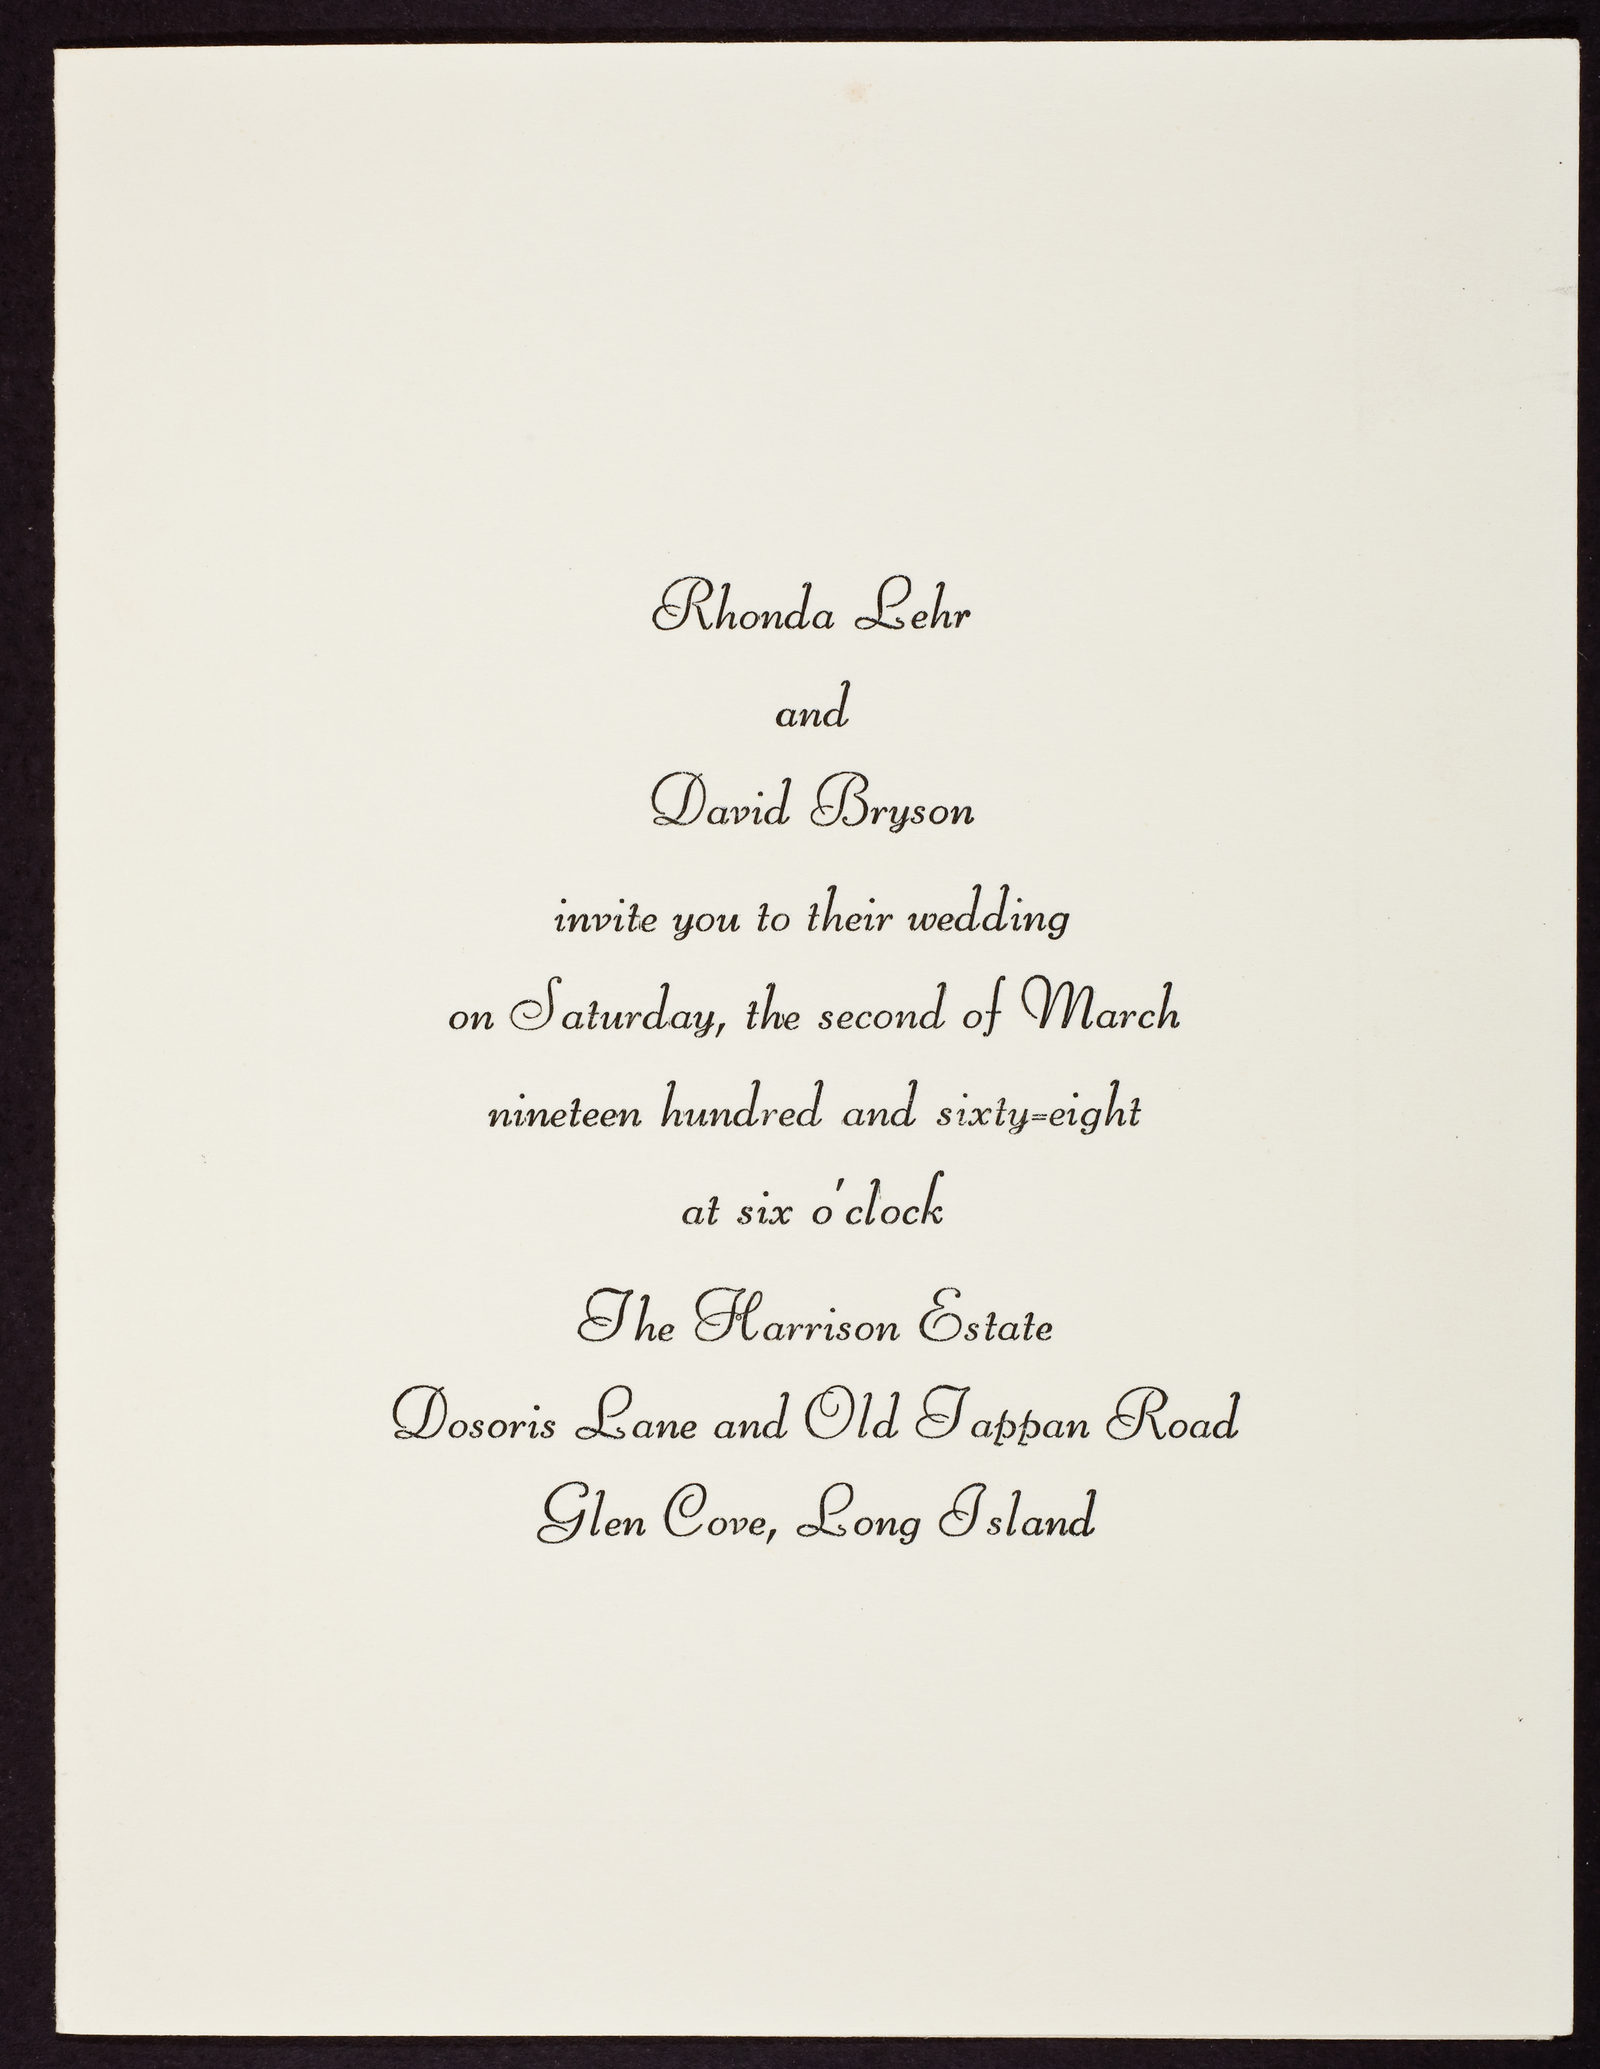 Rhonda Lehr
and
David Bryson
invite you to their wedding
on Saturday, the second of March
nineteen hundred and sixty=eight
at six o'clock
The Harrison Estate
Dosoris Lane and Old Tappan Road
Glen Cove, Long Island